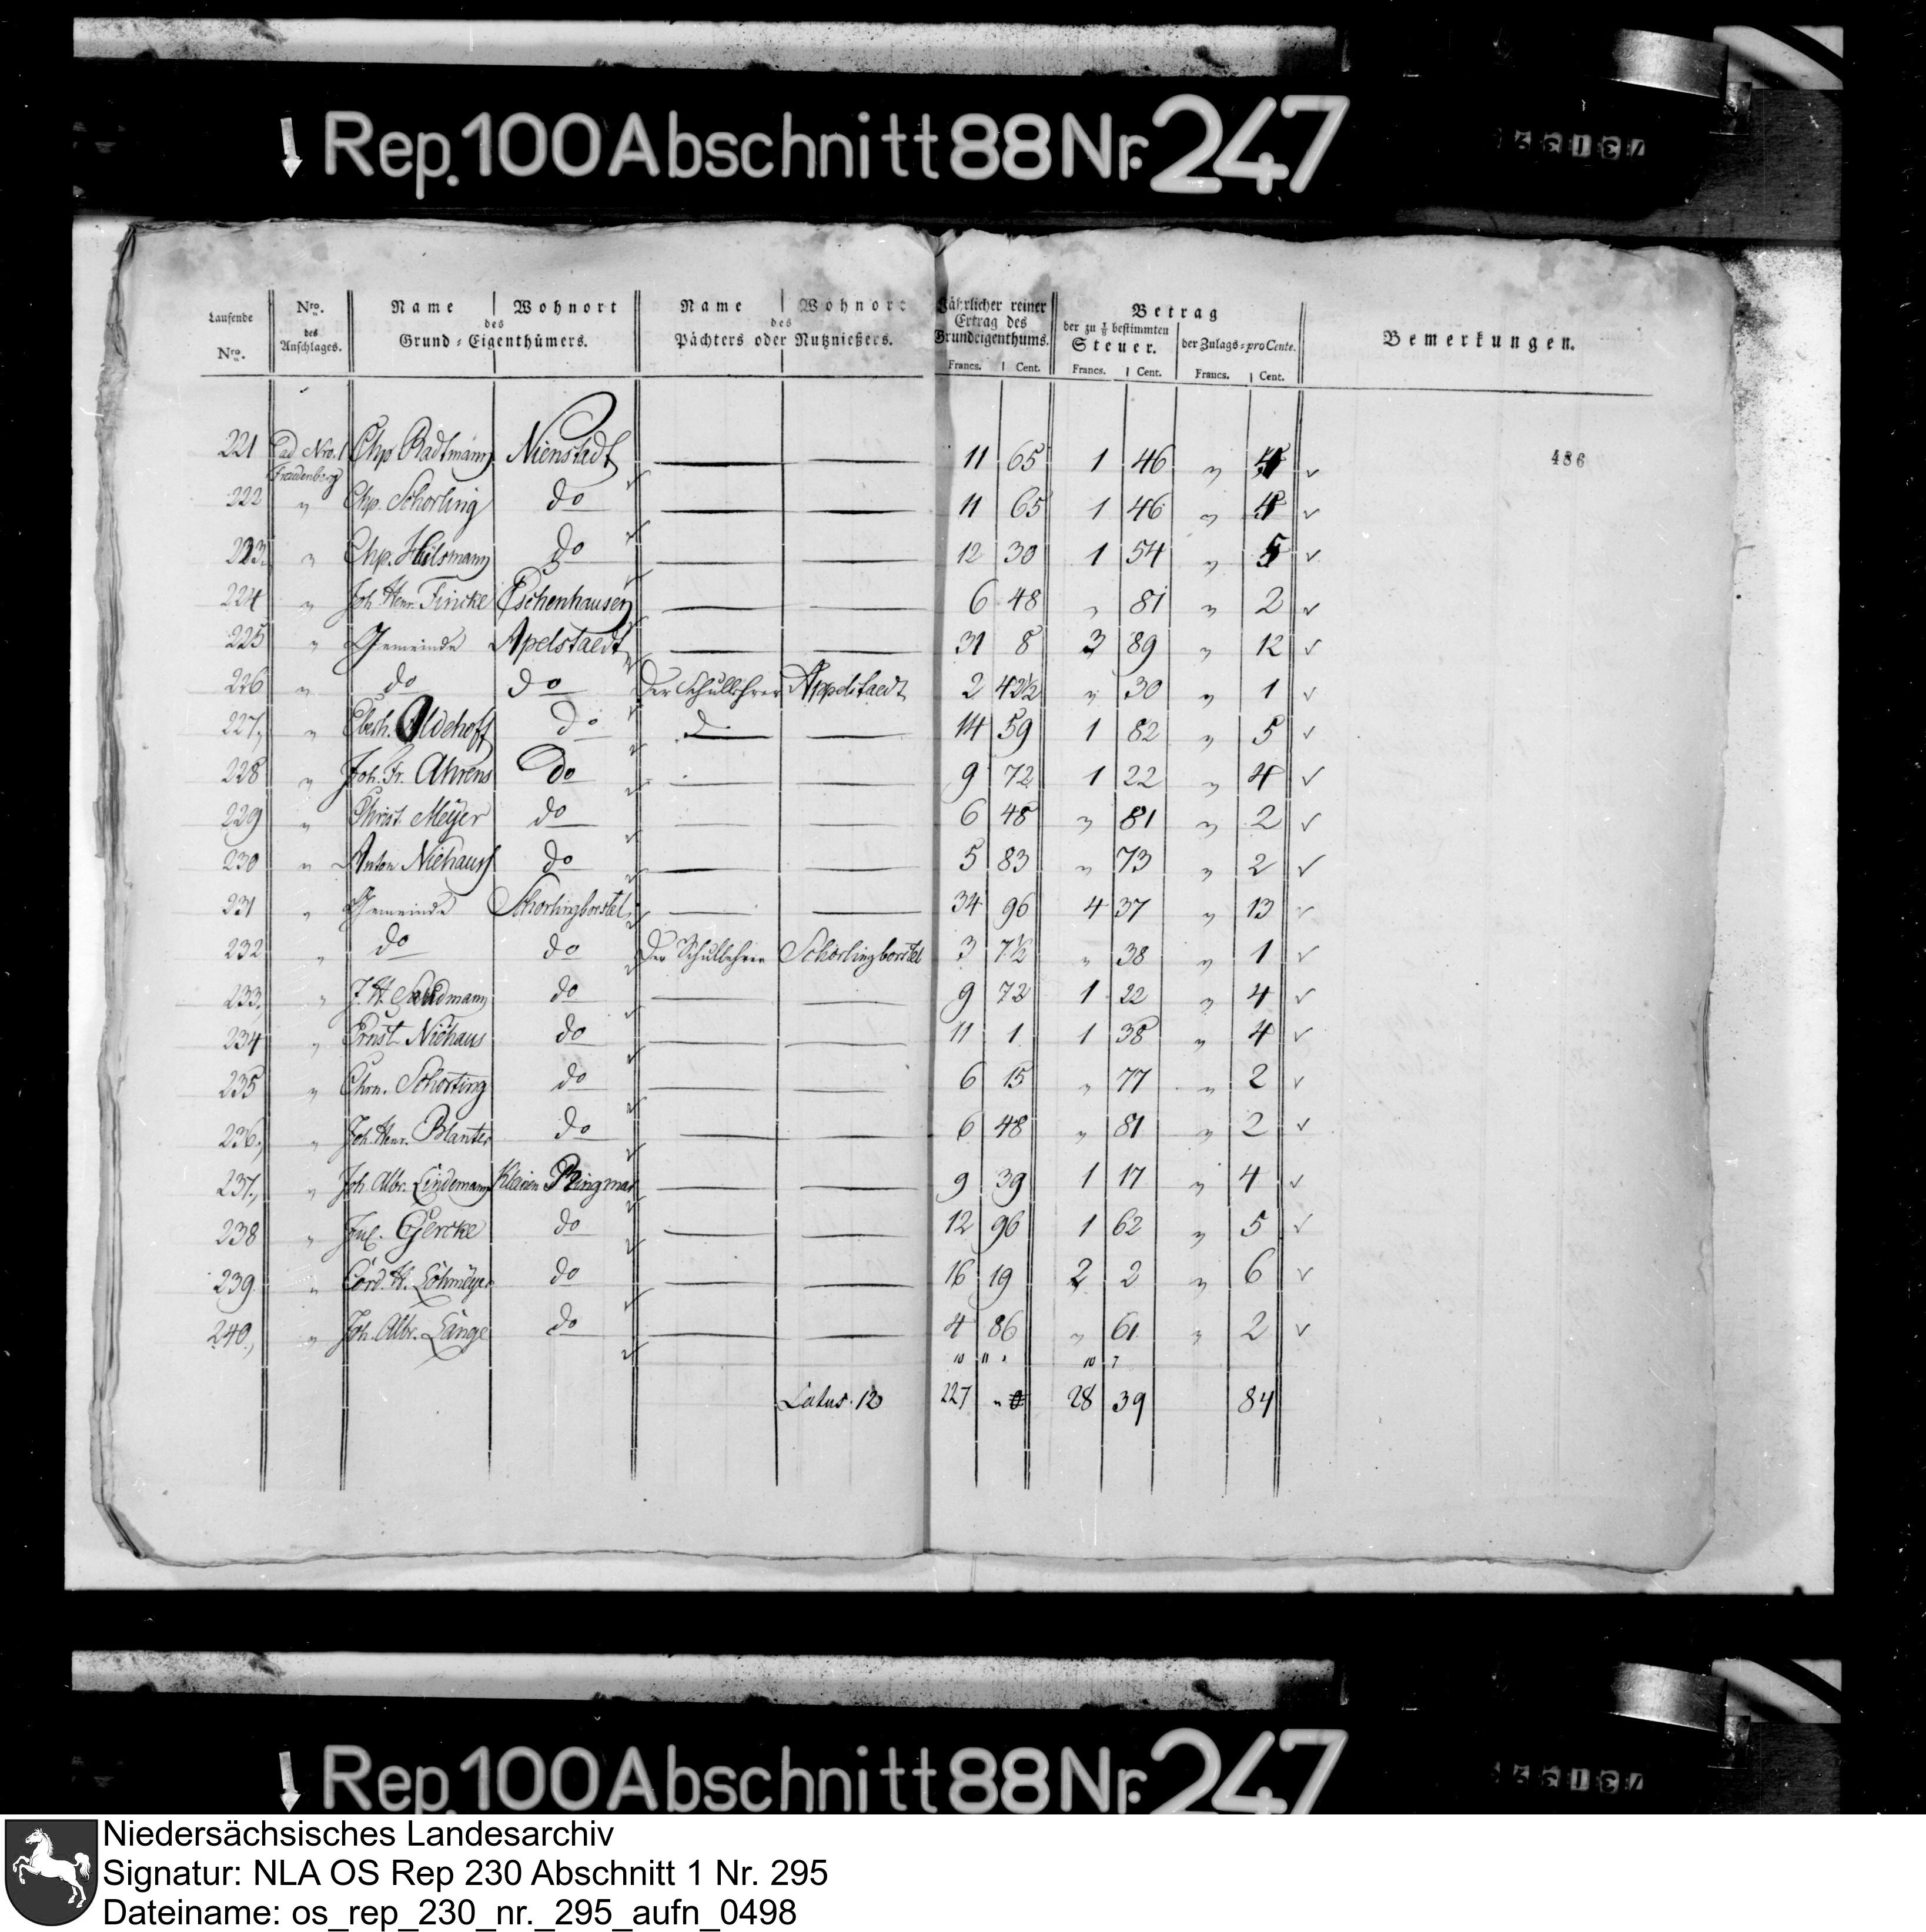 Rep. 100 Abschnitt 88 Nr. 247
Laufende Nro.
Nro. des Anschlages.
Name | Wohnort
des
Grund-Eigenthümers.
Name | Wohnort
des
Pächters oder Nutznießers.
Jährlicher reiner Ertrag des Grundeigenthums.
Francs. | Cent.
Betrag
der zu 1/8 bestimmten Steuer.
Francs. | Cent.
der Zulags-pro Cente.
Francs. | Cent.
Bemerkungen.
486
221 ad Nro. 1 Freudenberg Chp Badtmann Nienstadt — — 11 65 1 46 " 4
222 " Chp. Schorling do — — 11 65 1 46 " 4
223. " Chp. Hilsmann do — — 12 30 1 54 " 5
224 " Joh. Henr. Fincke Eschenhausen — — 6 48 " 81 " 2
225 " Gemeinde Apelstaedt — — 31 8 3 89 " 12
226 " do do Der Schullehrer Appelstaedt 2 42½ " 30 " 1
227, " Eberh. Oldehoff do — — 14 59 1 82 " 5
228 " Joh. Fr. Ahrens do — — 9 72 1 22 " 4
229 " Christ. Meyer do — — 6 48 " 81 " 2
230 " Anton Niehaus do — — 5 83 " 73 " 2
231 " Gemeinde Schorlingborstel — — 34 96 4 37 " 13
232 " do do Der Schullehrer Schorlingborstel 3 7½ " 38 " 1
233. " J. H. Sandmann do — — 9 72 1 22 " 4
234 " Ernst Niehaus do — — 11 1 1 38 " 4
235 " Chrn. Schorling do — — 6 15 " 77 " 2
236, " Joh. Henr. do — — 6 48 " 81 " 2
237., " Joh. Albr. Lindemann Klaien Ringmar — — 9 39 1 17 " 4
238 " Gercke do — — 12 96 1 62 " 5
239. " Cord. H. Lohmeyer do — — 16 19 2 2 " 6
240., " Joh. Albr. Lange do — — 4 86 " 61 " 2
Latus. 12 227 " 28 39 84
Rep. 100 Abschnitt 88 Nr. 247
Niedersächsisches Landesarchiv
Signatur: NLA OS Rep 230 Abschnitt 1 Nr. 295
Dateiname: os_rep_230_nr._295_aufn_0498